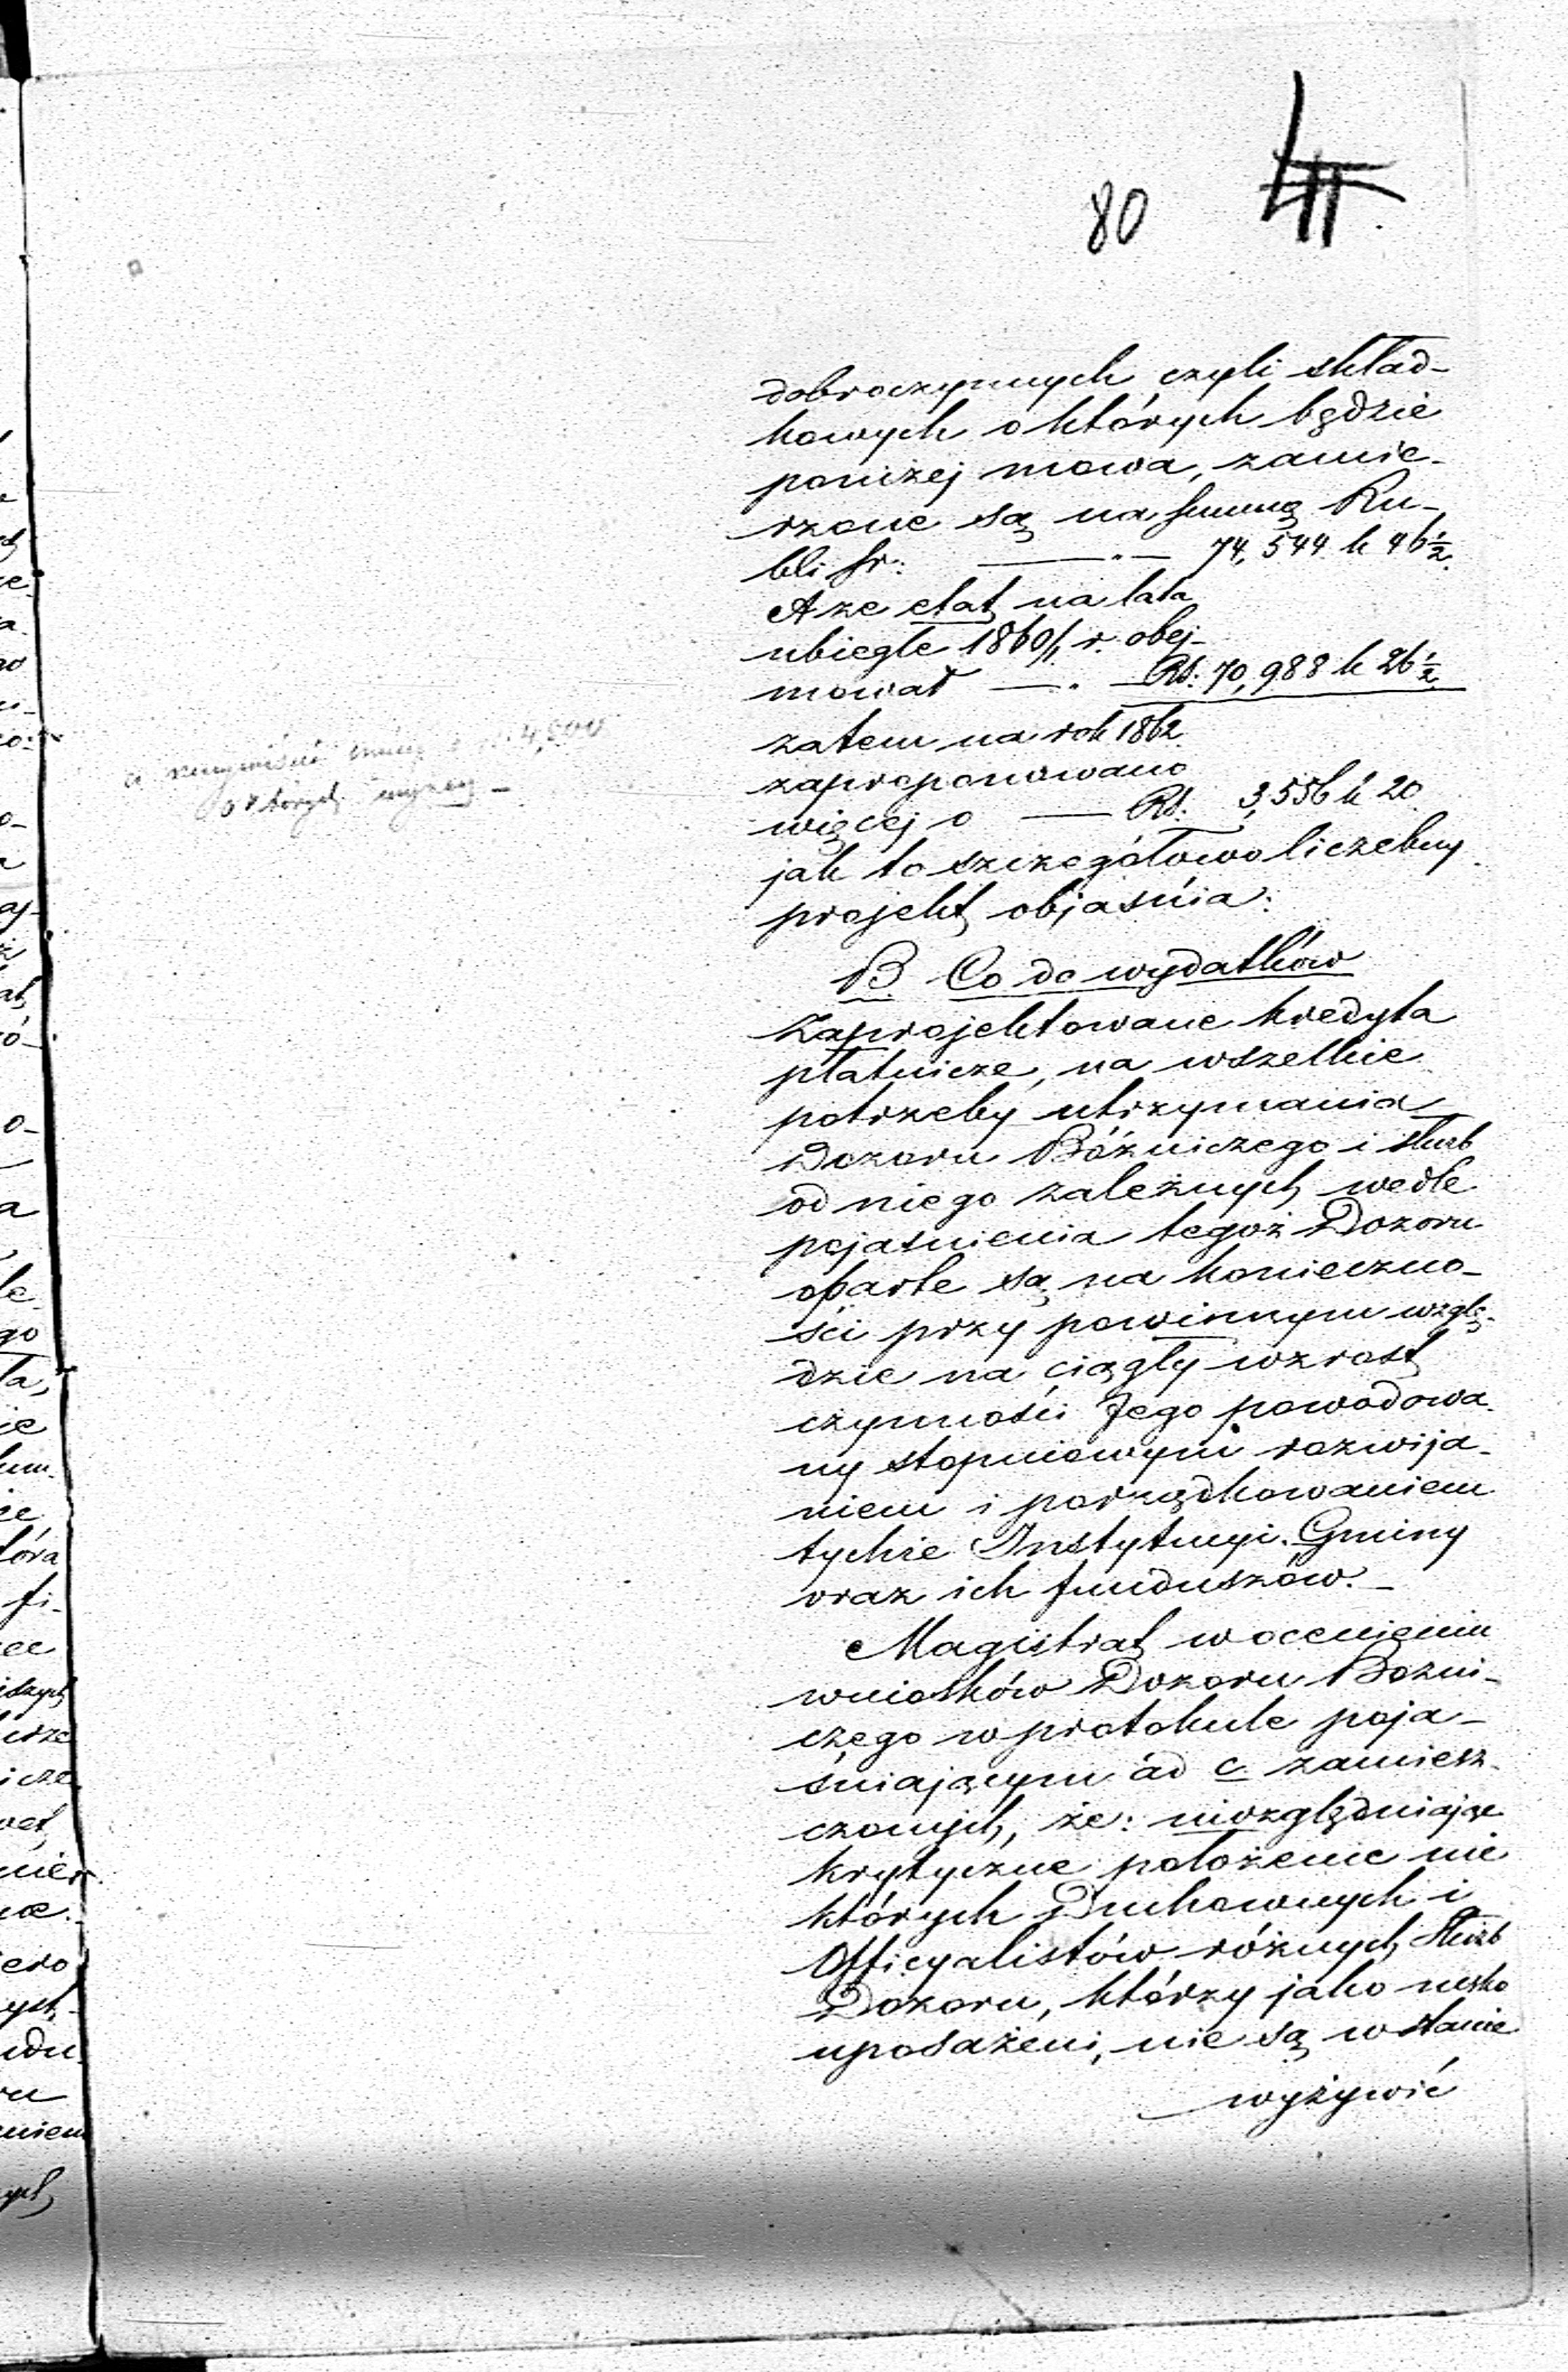 80
dobroczynnych czyli skład-
kowych o których będzie
poniżej mowa, zamie-
rzone są na summę Ru-
bli sr: —„— 74,544 k 46½.
A że etat na lata
ubiegłe 1860/1 r. obej-
mował —„— Rs: 70,988 k 26½
zatem na rok 1862
zaproponowano
więcej o — Rs: 3,556 k 20
jak to szczegółowo liczebny
projekt objaśnia:
B Co do wydatków
Zaprojektowane kredyta
płatnicze, na wszelkie
potrzeby utrzymania
Dozoru Bóżniczego i służb
od niego zależnych wedle
pojasnienia tegoż Dozoru
oparte są na konieczno-
ści przy powinnym wzglę-
dzie na ciągły wzrost
czynności Jego powodowa-
ny stopniowym rozwija-
niem i porządkowaniem
tychże Instytucyi Gminy
oraz ich funduszów. -
Magistrat w ocenieniu
wniosków Dozoru Bożni-
czego w protokule poja-
śniającym ad c. zamiesz-
czonych, że: uwzględniając
krytyczne położenie nie
których Duchownych i
Officyalistów różnych Służb
Dozoru, którzy jako nisko
uposażeni, nie są w stanie
wyżywić
o których wyżej -